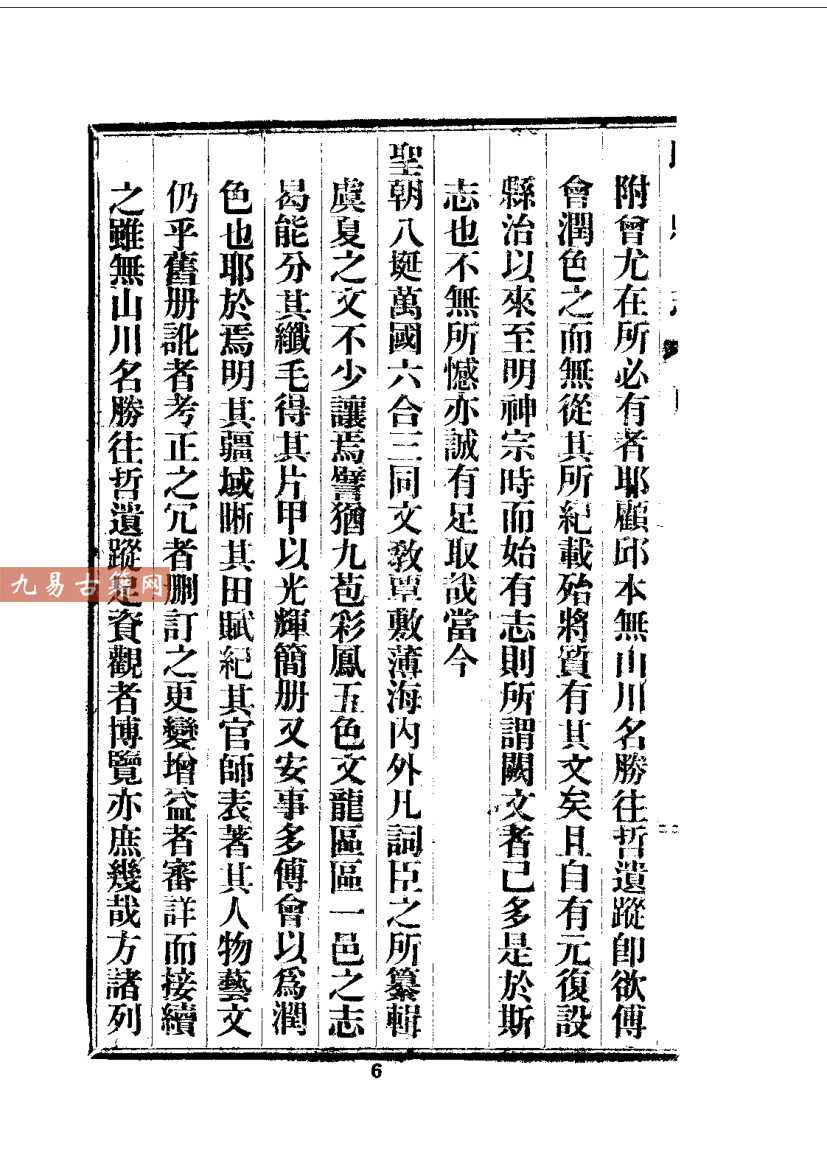 附會尤在所必有者耶顧邱本無山川名勝往哲遺蹤卽欲傅
會潤色之而無從其所紀載殆將質有其文矣且自有元復設
縣治以來至明神宗時而始有志則所謂闕文者已多是於斯
志也不無所憾亦誠有足取哉當今
聖朝八埏萬國六合三同文敎覃敷薄海內外凡詞臣之所纂輯
虞夏之文不少讓焉譬猶九苞彩鳳五色文龍區區一邑之志
曷能分其纖毛得其片甲以光輝簡册又安事多傅會以爲潤
色也耶於焉明其疆域晰其田賦紀其官師表著其人物藝文
仍乎舊册訛者考正之冗者刪訂之更變增益者審詳而接續
之雖無山川名勝往哲遺蹤足資觀者博覽亦庶幾哉方諸列
九易古籍网
6